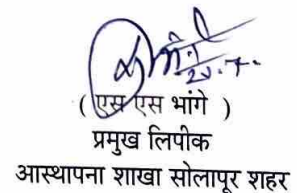 ( एस एस भांगे )
प्रमुख लिपीक
आस्थापना शाखा सोलापूर शहर